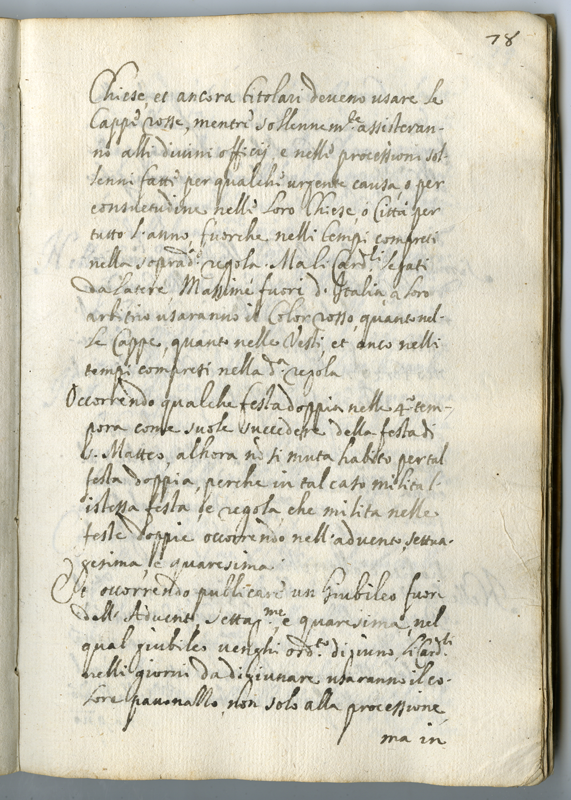 78
Chiese, et ancora titolari deveno usare le
Cappe rosse, mentre sollennem.te assisteran-
no alli divini officij, e nelle processioni sol-
lenni fatte per qualche urgente causa, o per
consuetudine nelle loro Chiese, o Città per
tutto l'anno, fuorche nelli tempi compresi
nella soprad.a regola. Ma li Card.li legati
da latere Massime fuori d'Italia, a loro
arbitrio usaranno il Color rosso, quanto nel-
le Cappe, quanto nelle Vesti, et anco nelli
tempi compresi nella d.a regola
Occorrendo qualche festa doppia nelle 4.o tem-
pora come suole succedere della festa di
S. Matteo, alhora nò si muta habito per tal
festa doppia, perche in tal caso milita l'
istessa festa, e regola, che milita nelle
feste doppie occorrendo nell'advento, settua-
gesima, e quaresima
Et occorrendo publicare un Giubileo fuori
dell'Advento, settag.me, e quaresima, nel
qual giubileo venghi ord.to digiuno, li Card.li
nelli giorni da digiunare usaranno il co-
lore pavonallo, non solo alla processione
ma in